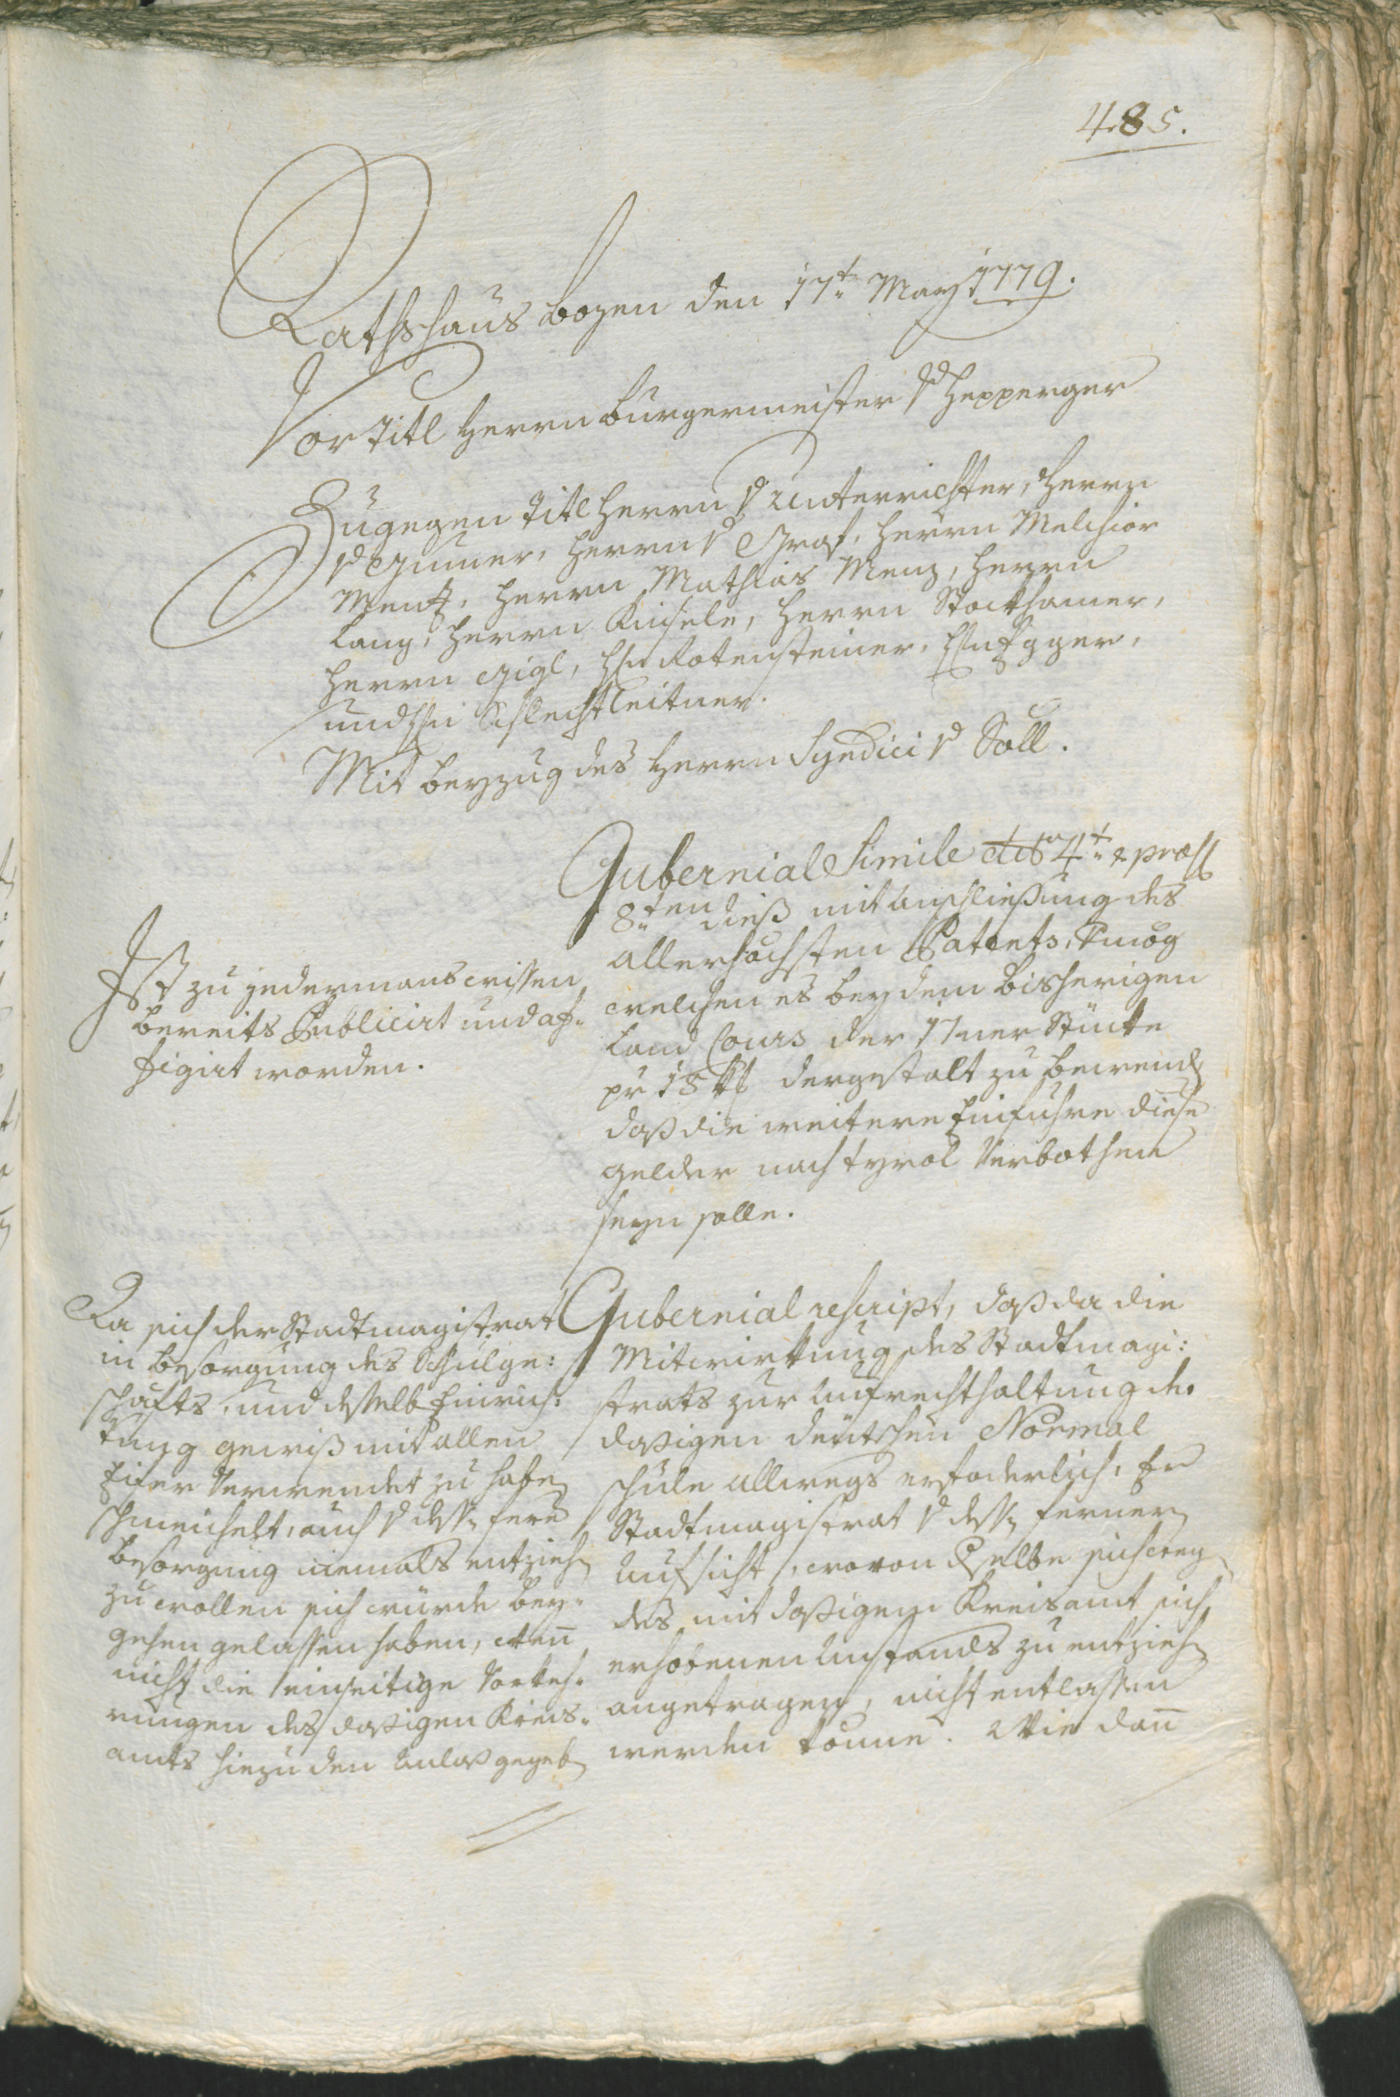 485.
Rathshaus Bozen den 17t. May 1779.
Vor Titl Herrn Burgermeister v Hepperger
Zugegen Titl Herrn v Unterrichter, Herrn
v Gumer, Herrn v Graf, Herrn Melchior
Menz, Herrn Mathias Menz, Herrn
Lang, Herrn Kinsele, Herrn Stockhamer,
Herrn Gigl, Hn Rotensteiner, Hn Egger,
und Hn Schlechtleitner.
Mit beyzug des Herrn Syndici v Söll.
Gubernial Simile de 4t. & præs
8ten dieß mit anschließung des
allerhöchsten Patents, Vmög
welchen es bey dem bisherigen
Land Cours der 17ner Stücke
pr 18 dergestalt zu bewend
daß die weitere Einfuhre diese
Gelder nach Tyrol Verbothen
seyn solle.
Ist zu jedermans wissen
bereits Publicirt und af-
figirt worden.
Gubernial rescript, daß da die
Mitwirkung des Stadtmagi:
strats zur Aufrechthaltung der
daßigen deutschen Normal
schule allwegs erfoderlich, Er
Stadtmagistrat v dess ferner
Aufsicht, wovon Selbe sich weg
des mit daßigem Kreisamt sich
erhobenen Anstands zu entzieh
angetragen, nicht entlassen
werden könne. Wie dan
Da sich der Stadtmagistrat
in besorgung des Schulge:
schäfts, und desselb Einrich:
tung gewiß mit allen
Eifer Verwendet zu habe
schmeichelt, auch v dess fern
besorgung niemals entzieh
zu wollen sich würde bey-
gehen gelassen haben, wen
nicht die einseitige Vorkeh-
rungen des daßigen Kreis-
amts hiezu den Anlaß gegeb